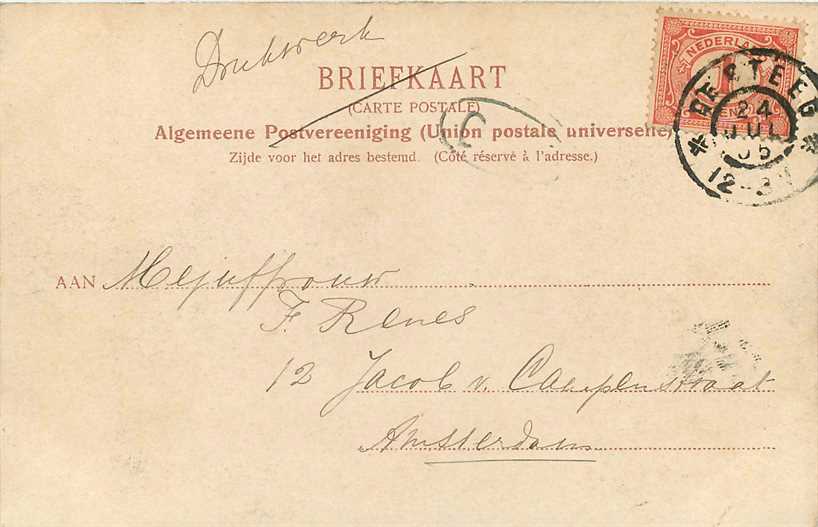 Drukwerk
BRIEFKAART
(CARTE POSTALE)
Algemeene Postvereeniging (Union postale universelle)
Zijde voor het adres bestemd. (Côté réservé à l'adresse.)
NEDERLAND
DE STEEG
24
JUL
05
12-3N
AAN Mejuffrouw
F. Renes
12 Jacob v. Campenstraat
Amsterdam